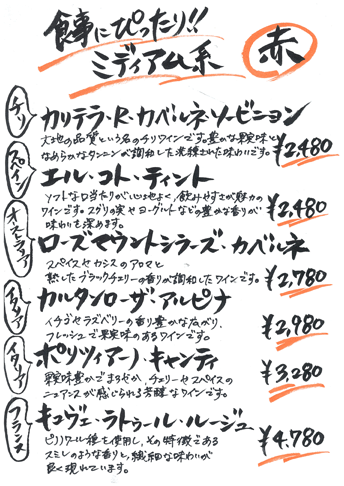 食事にぴったり!!
ミディアム系
赤
チリ
カリテラ・R・カベルネ・ソービニヨン
大地の品質という名のチリワインです。豊かな果実味と
なめらかなタンニンが調和した洗練された味わいです。
¥2,480
スペイン
エル・コト・ティント
ソフトな口当たりが心地よく、飲みやすさが魅力の
ワインです。スグリの実やヨーグルトなどの豊かな香りが
味わいを深めます。
¥2,480
オーストラリア
ローズマウントシラーズ・カベルネ
スパイスやカシスのアロマと
熟したブラックチェリーの香りが調和したワインです。
¥2,780
イタリア
カルタンローザ・アルピナ
イチゴやラズベリーの香り豊かな広がり、
フレッシュで果実味のあるワインです。
¥2,980
イタリア
ポリツィアーノ・キャンティ
果実味豊かでまろやか、チェリーやスパイスの
ニュアンスが感じられる芳醇なワインです。
¥3,280
フランス
キュヴェ・ラトゥール・ルージュ
ピノノワール種を使用し、その特徴である
スミレのような香りと、繊細な味わいが
良く現れています。
¥4,780